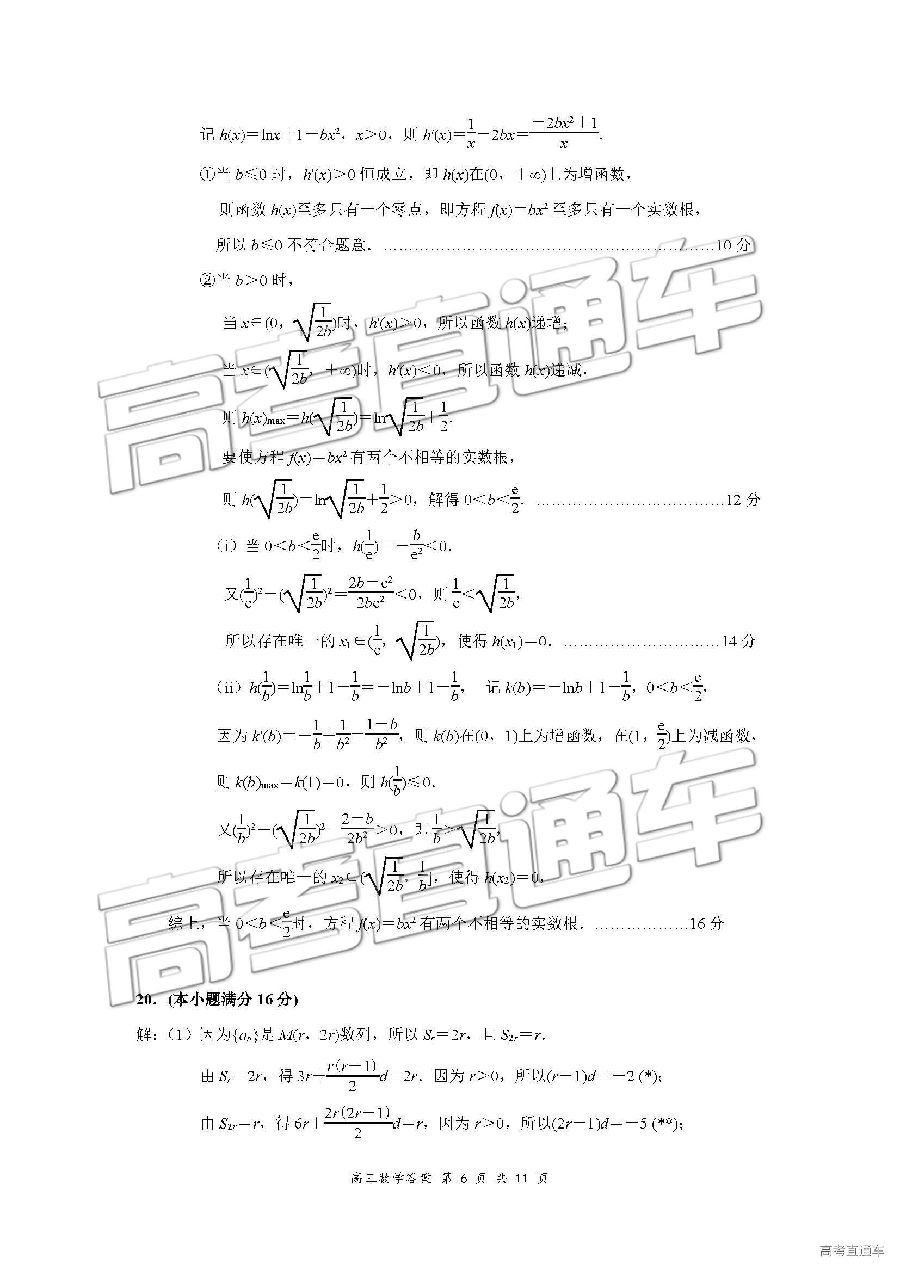 记 h(x)=lnx+1-bx²,x>0,则 h′(x)=1/x-2bx=(-2bx²+1)/x.
①当 b≤0 时,h′(x)>0 恒成立,即 h(x)在(0,+∞)上为增函数,
则函数 h(x)至多只有一个零点,即方程 f(x)=bx² 至多只有一个实数根,
所以 b≤0 不符合题意.……………………………………………………10 分
②当 b>0 时,
当 x∈(0,√(1/2b))时,h′(x)>0,所以函数 h(x)递增;
当 x∈(√(1/2b),+∞)时,h′(x)<0,所以函数 h(x)递减.
则 h(x)max=h(√(1/2b))=ln√(1/2b)+1/2.
要使方程 f(x)=bx² 有两个不相等的实数根,
则 h(√(1/2b))=ln√(1/2b)+1/2>0,解得 0<b<e/2.………………………………12 分
(i)当 0<b<e/2时,h(1/e)=-b/e²<0.
又(1/e)²-(√(1/2b))²=(2b-e²)/2be²<0,则1/e<√(1/2b),
所以存在唯一的 x₁∈(1/e,√(1/2b)),使得 h(x₁)=0.…………………………14 分
(ii)h(1/b)=ln1/b+1-1/b=-lnb+1-1/b, 记 k(b)=-lnb+1-1/b,0<b<e/2,
因为 k′(b)=-1/b+1/b²=(1-b)/b²,则 k(b)在(0,1)上为增函数,在(1,e/2)上为减函数,
则 k(b)max=k(1)=0,则 h(1/b)≤0.
又(1/b)²-(√(1/2b))²=(2-b)/2b²>0,即1/b>√(1/2b),
所以存在唯一的 x₂∈(√(1/2b),1/b],使得 h(x₂)=0,
综上,当 0<b<e/2时,方程 f(x)=bx² 有两个不相等的实数根.………………16 分
20.(本小题满分 16 分)
解:(1)因为{aₙ}是 M(r,2r)数列,所以 Sᵣ=2r,且 S₂ᵣ=r.
由 Sᵣ=2r,得 3r+r(r-1)/2 d=2r.因为 r>0,所以(r-1)d=-2 (*);
由 S₂ᵣ=r,得 6r+2r(2r-1)/2 d=r,因为 r>0,所以(2r-1)d=-5 (**);
高三数学答案 第 6 页 共 11 页
高考直通车
高考直通车
高考直通车